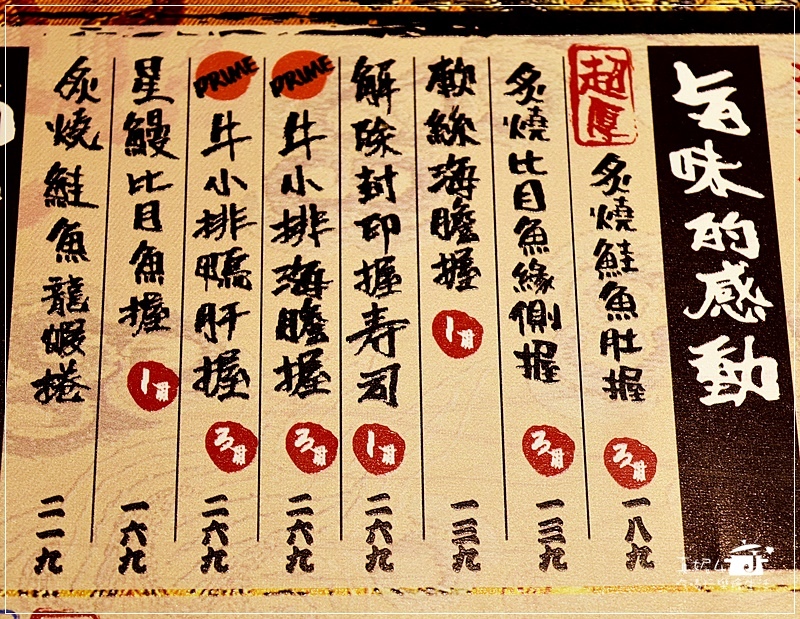 旨味的感動
超厚
炙燒鮭魚肚握
3貫
一八九
炙燒比目魚緣側握
3貫
一三九
軟絲海膽握
1貫
一三九
解除封印握寿司
1貫
二六九
PRIME
牛小排海膽握
3貫
二六九
PRIME
牛小排鴨肝握
3貫
二六九
星鰻比目魚握
1貫
一六九
炙燒鮭魚龍蝦捲
二一九